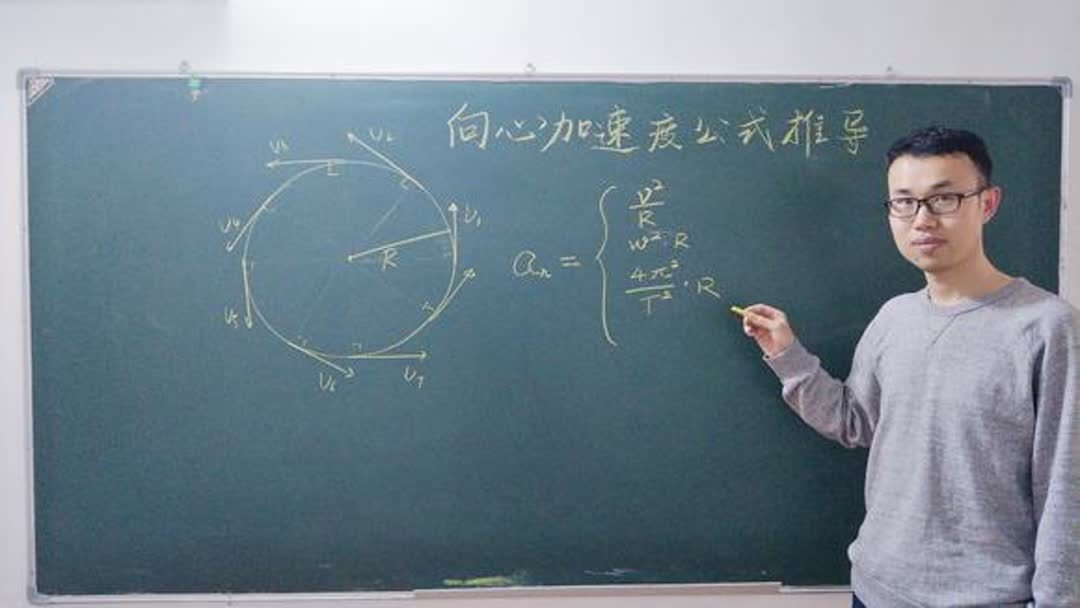 向心加速度公式推导
V3
V2
V4
V1
R
V5
V6
V7
aₙ = {
v²/R
w²·R
4π²/T²·R